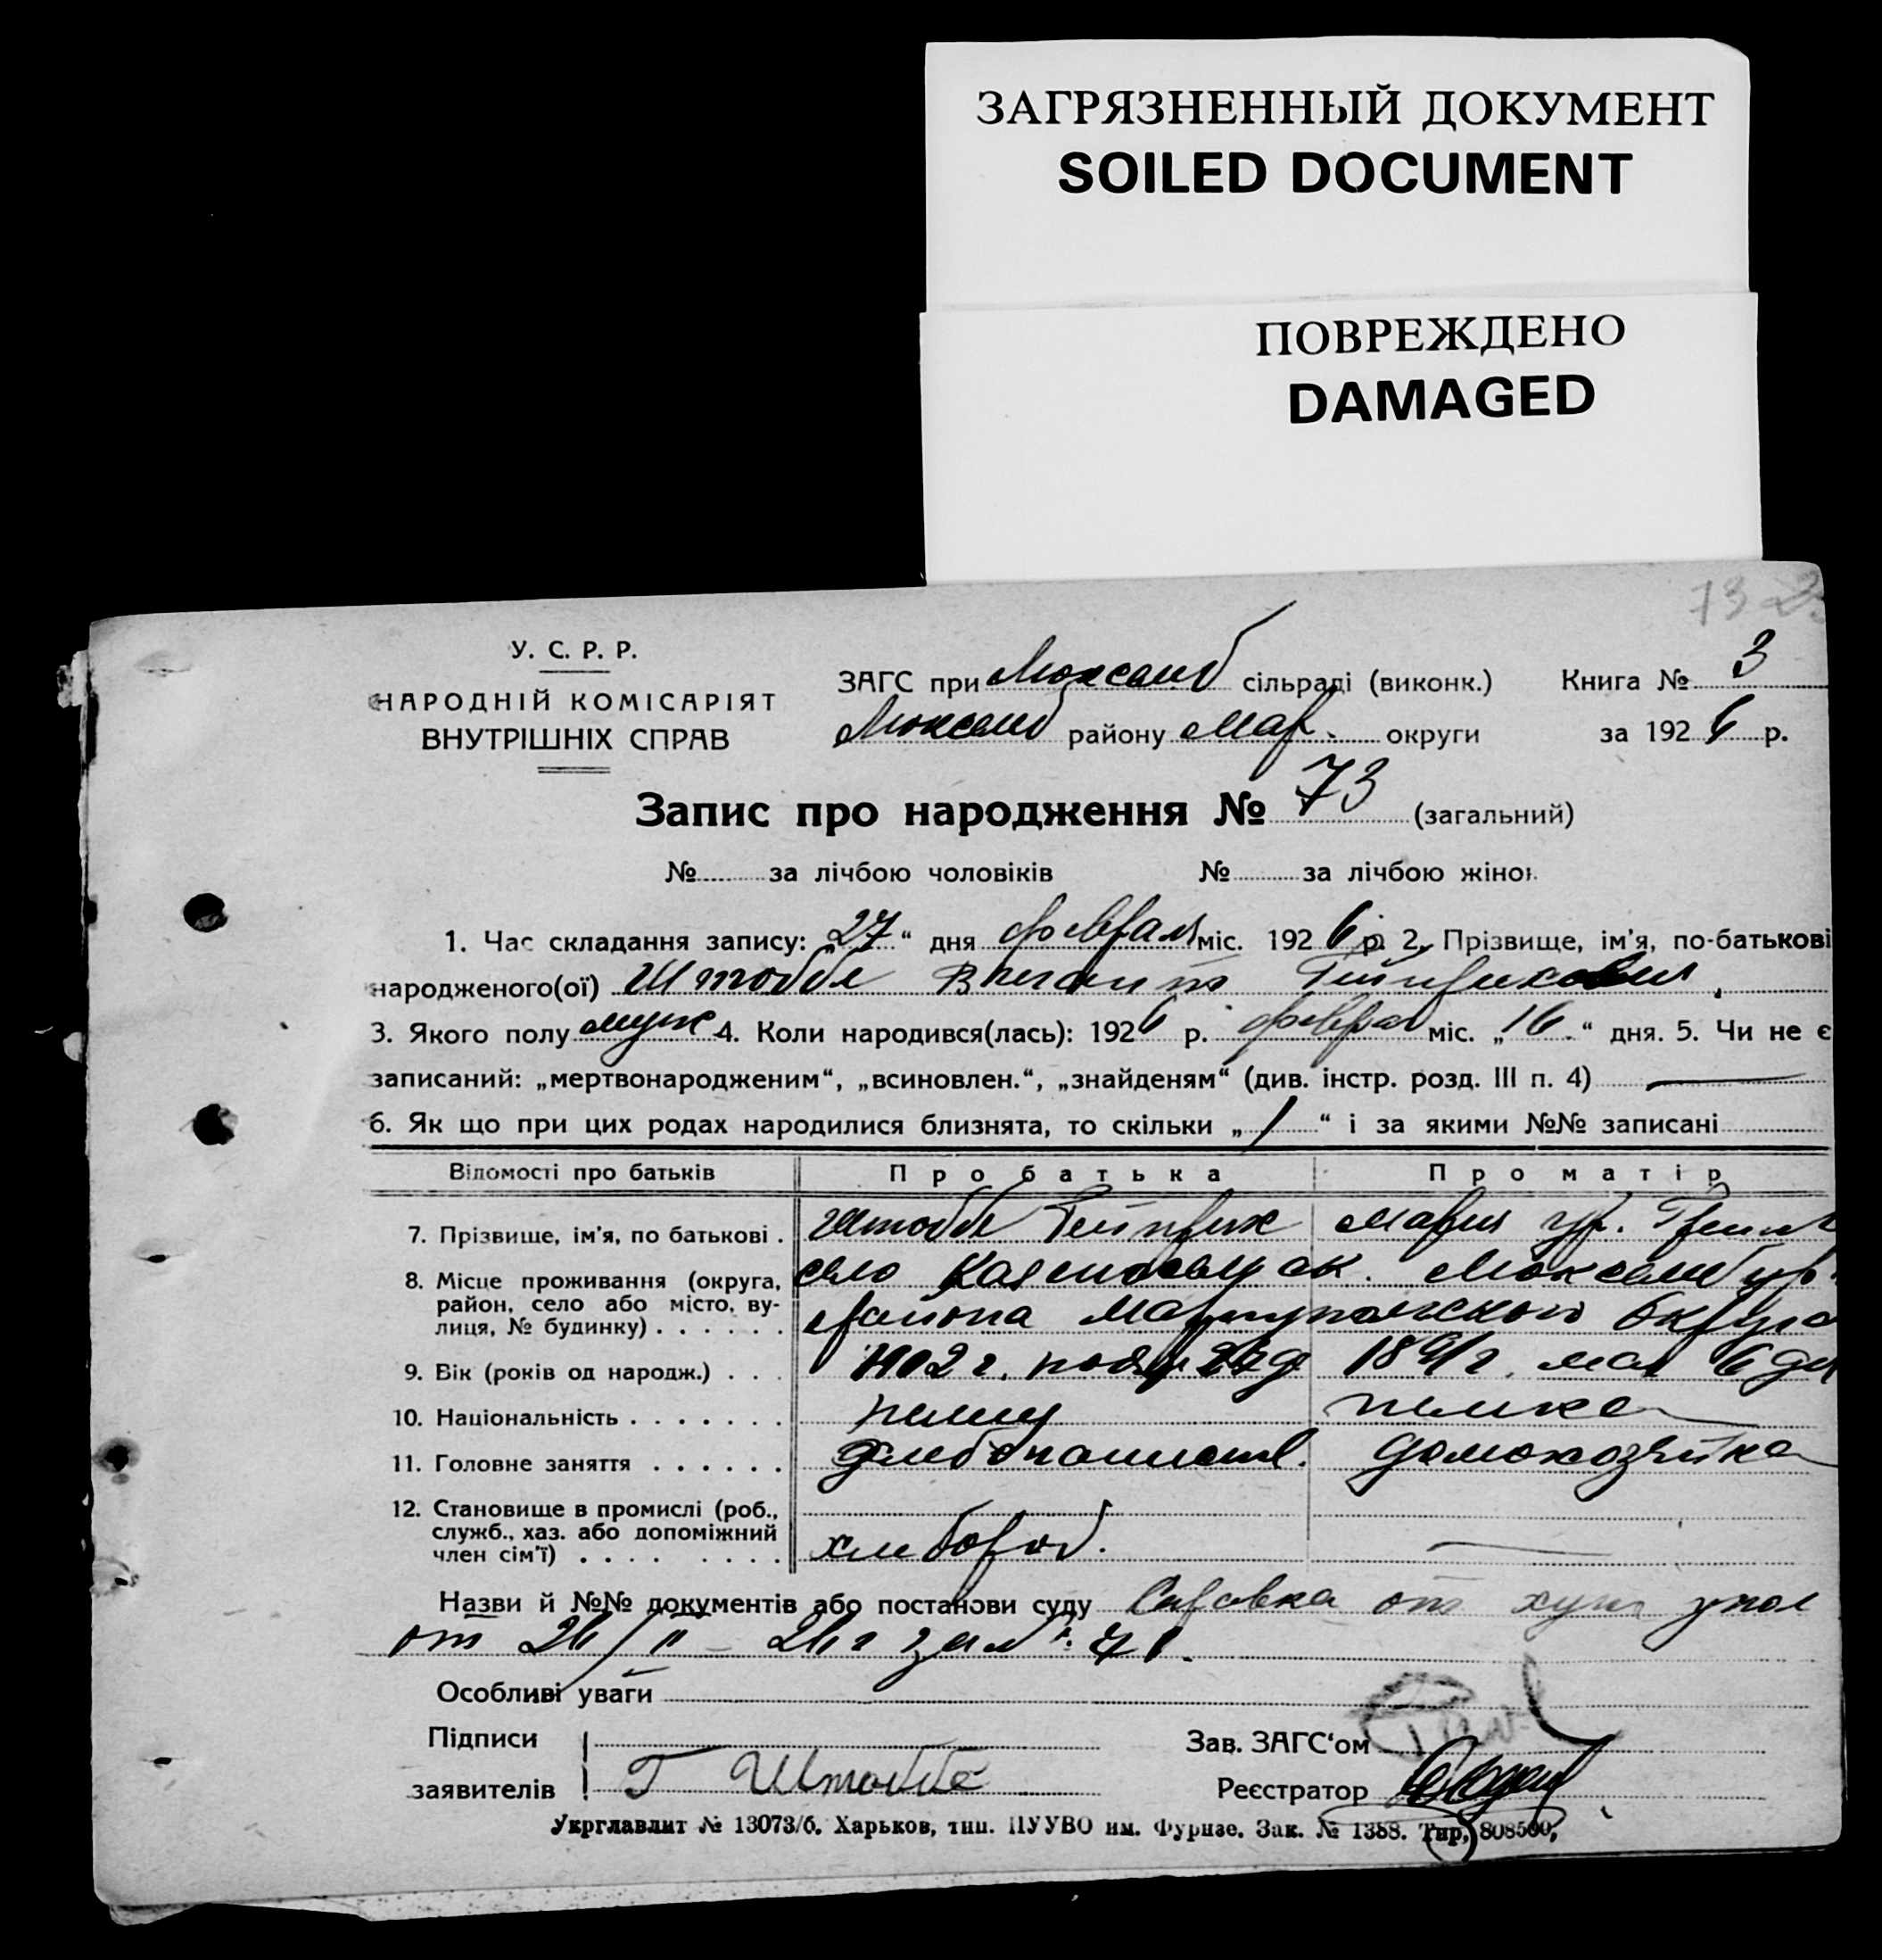 ЗАГРЯЗНЕННЫЙ ДОКУМЕНТ
SOILED DOCUMENT
ПОВРЕЖДЕНО
DAMAGED
73
У. С. Р. Р.
НАРОДНІЙ КОМІСАРІЯТ
ВНУТРІШНІХ СПРАВ
ЗАГС при Люксемб сільраді (виконк.) Книга № 3
Люксемб району Мар. округи за 1926 р.
Запис про народження № 73 (загальний)
№ за лічбою чоловіків № за лічбою жінок
1. Час складання запису: „27“ дня февраля міс. 1926 р. 2. Прізвище, ім’я, по-батькові
народженого(ої) Штоббе Гейнрихович
3. Якого полу муж 4. Коли народився(лась): 1926 р. феврал міс. „16“ дня. 5. Чи не є
записаний: „мертвонародженим“, „всиновлен.“, „знайденям“ (див. інстр. розд. III п. 4) —
6. Як що при цих родах народилися близнята, то скільки „1“ і за якими №№ записані
Відомості про батьків Про батька Про матір
7. Прізвище, ім’я, по батькові . Штоббе Гейнрих Мария ур.
8. Місце проживання (округа, село Люксембур
район, село або місто, ву- района Мариупольского Округа
лиця, № будинку) . . . . . .
9. Вік (років од народж.) . . . 1902 г. мая 6 дня
10. Національність . . . . . . . немец немка
11. Головне заняття . . . . . . хлебопашеств. домохозяйка
12. Становище в промислі (роб.,
служб., хаз. або допоміжний
член сім’ї) . . . . . . . . хлебороб. —
Назви й №№ документів або постанови суду Справка от хут упол
от 26/II – 26 г за № 71.
Особливі уваги
Підписи
Зав. ЗАГС‘ом
заявителів Г Штоббе Реєстратор
Укрглавлит № 13073/б. Харьков, тип. ПУУВО им. Фрунзе. Зак. № 1358. Тир, 808500,